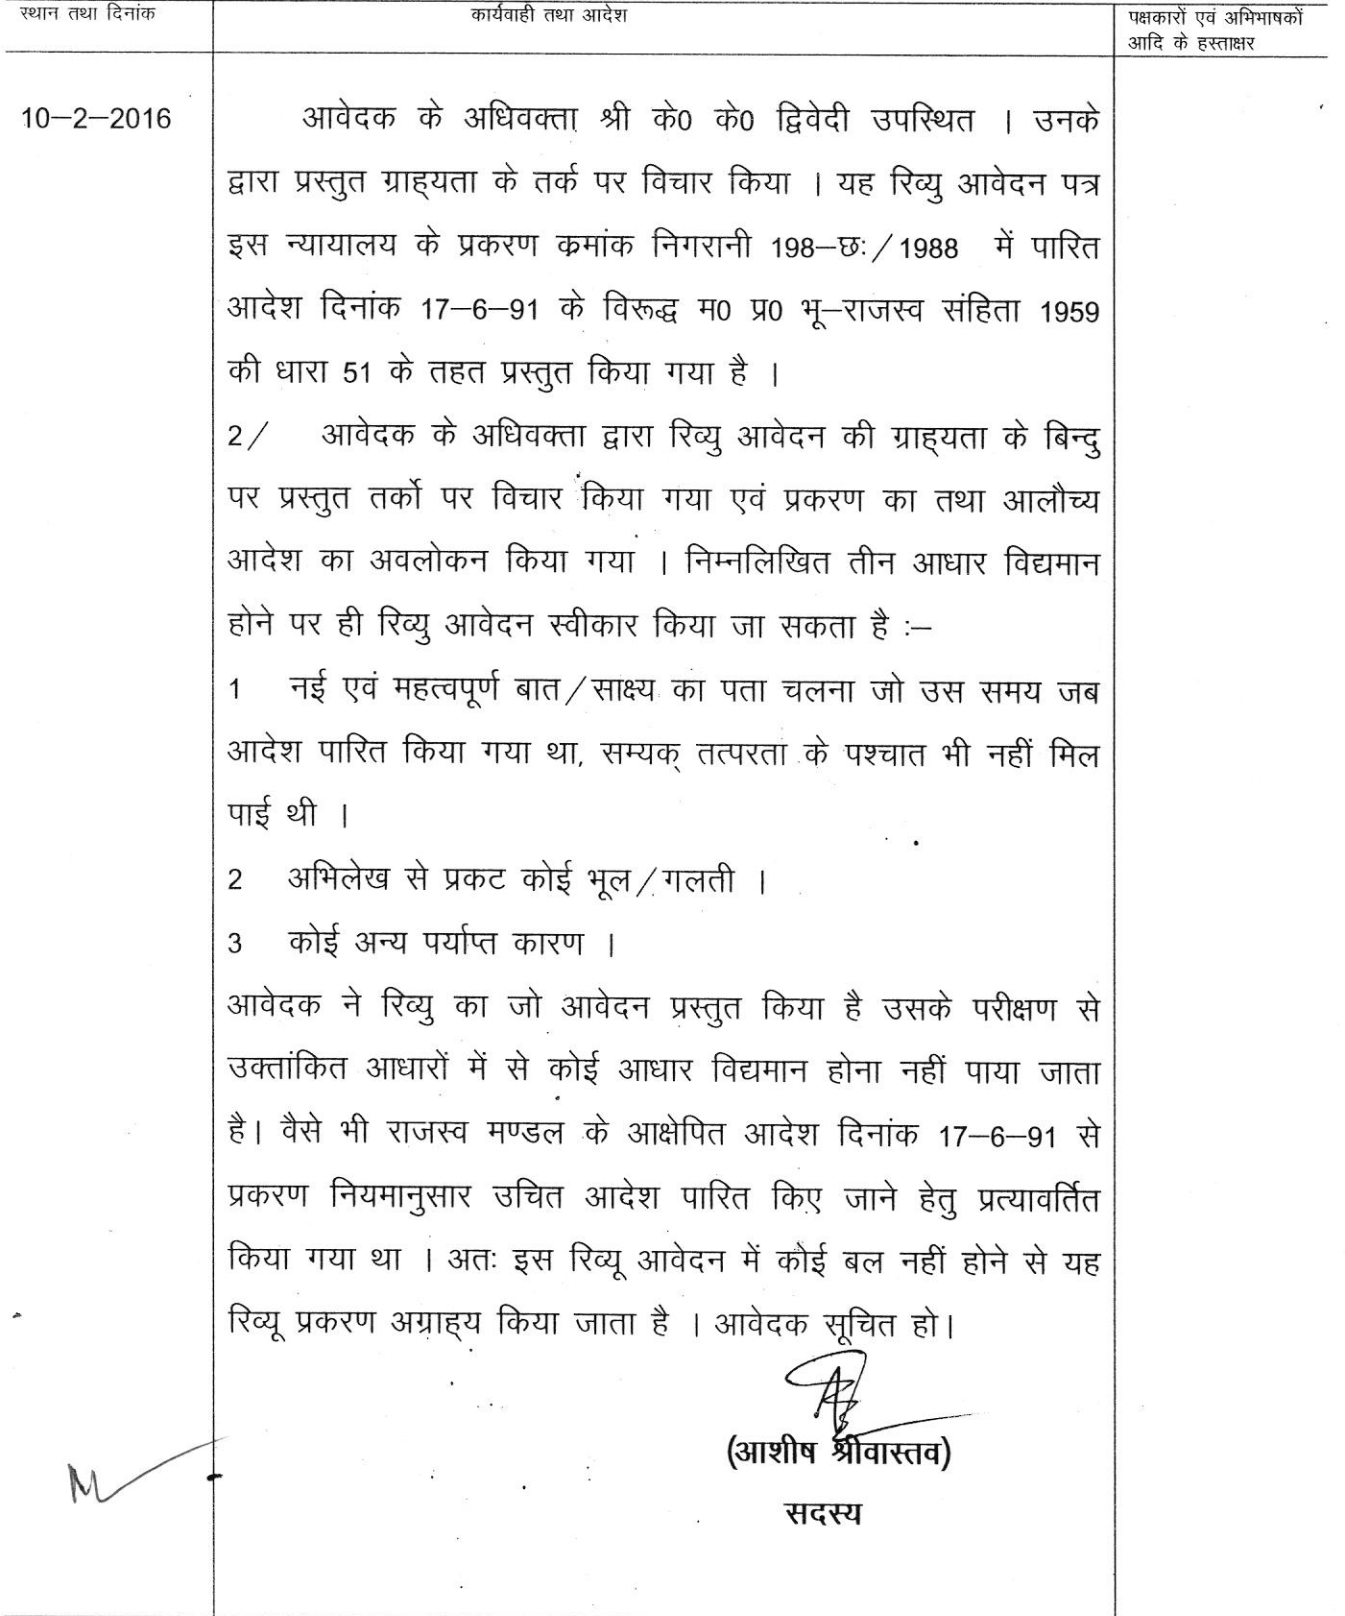 स्थान तथा दिनांक
कार्यवाही तथा आदेश
पक्षकारों एवं अभिभाषकों
आदि के हस्ताक्षर
10–2–2016
आवेदक के अधिवक्ता श्री के0 के0 द्विवेदी उपस्थित । उनके
द्वारा प्रस्तुत ग्राह्यता के तर्क पर विचार किया । यह रिव्यु आवेदन पत्र
इस न्यायालय के प्रकरण क्रमांक निगरानी 198–छः/1988 में पारित
आदेश दिनांक 17–6–91 के विरूद्ध म0 प्र0 भू–राजस्व संहिता 1959
की धारा 51 के तहत प्रस्तुत किया गया है ।
2/ आवेदक के अधिवक्ता द्वारा रिव्यु आवेदन की ग्राह्यता के बिन्दु
पर प्रस्तुत तर्को पर विचार किया गया एवं प्रकरण का तथा आलौच्य
आदेश का अवलोकन किया गया । निम्नलिखित तीन आधार विद्यमान
होने पर ही रिव्यु आवेदन स्वीकार किया जा सकता है :–
1 नई एवं महत्वपूर्ण बात/साक्ष्य का पता चलना जो उस समय जब
आदेश पारित किया गया था, सम्यक् तत्परता के पश्चात भी नहीं मिल
पाई थी ।
2 अभिलेख से प्रकट कोई भूल/गलती ।
3 कोई अन्य पर्याप्त कारण ।
आवेदक ने रिव्यु का जो आवेदन प्रस्तुत किया है उसके परीक्षण से
उक्तांकित आधारों में से कोई आधार विद्यमान होना नहीं पाया जाता
है। वैसे भी राजस्व मण्डल के आक्षेपित आदेश दिनांक 17–6–91 से
प्रकरण नियमानुसार उचित आदेश पारित किए जाने हेतु प्रत्यावर्तित
किया गया था । अतः इस रिव्यू आवेदन में कोई बल नहीं होने से यह
रिव्यू प्रकरण अग्राह्य किया जाता है । आवेदक सूचित हो।
(आशीष श्रीवास्तव)
सदस्य